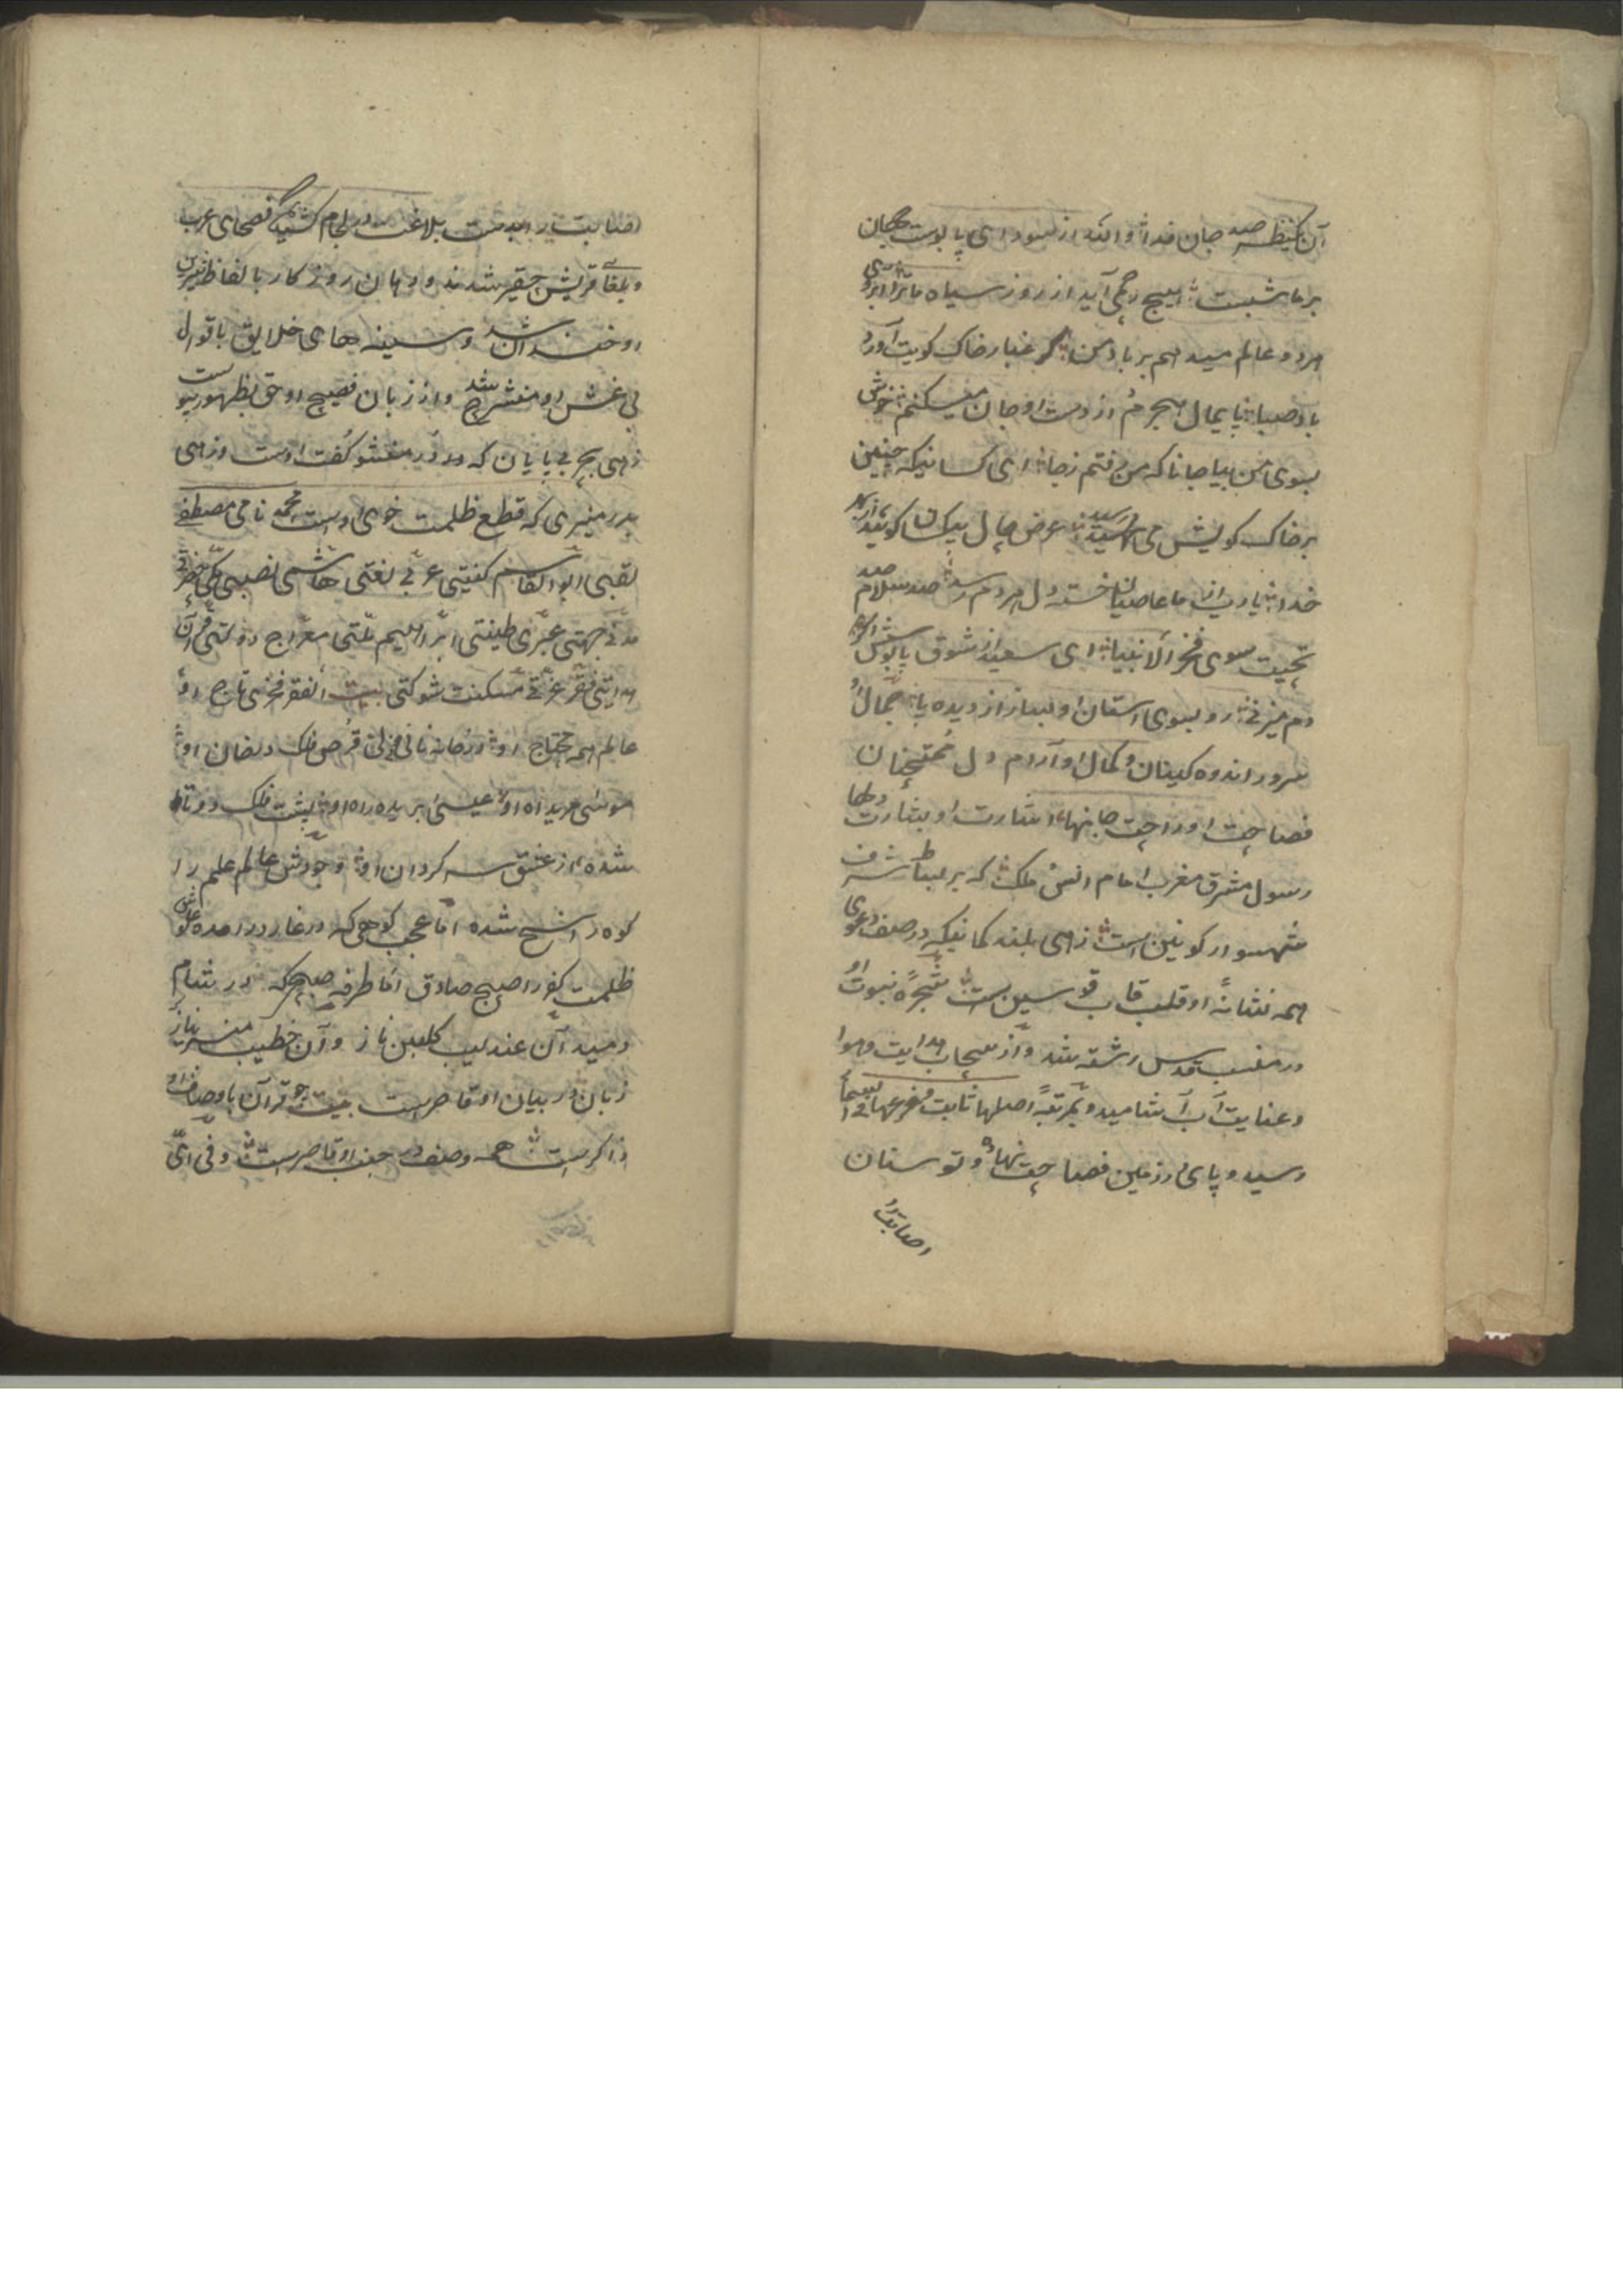 آن یکنظر صد جان فدا والله از سودای پابوست جهان
بر ما شبست هیچ رحمی آید از روز سیاه ما ترا
هر دو عالم میدهم بر باد من گر غبار خاک کویت آورد
باد صبا پایمال هجرم از دست او جان میکنم خوش
بسوی من بیا جانا که من رفتم ز جا ای کسانیکه چنین
بر خاک کویش می رسید عرض حال بیکسان کویید از بهر
خدا یا رب از ما عاصیان خسته دل هر دم رسد صد سلام صد
تحیت سوی فخر الانبیا ای سعید از شوق پابوسش اگر
دم میزنی رو بسوی آستان او بساز از دیده پا جمال او
سرور اندوه کینان و کمال او آرام دل ممتحنان
فصاحت او راحت جانها اشارت او بشارت دلها
رسول مشرق مغرب امام انس ملک که بر بساط شرف
شهسوار کونین است زهی بلند کمانیکه در صف دعوی
همه نشانهٔ او قلب قاب قوسین است شجرهٔ نبوت او
در مغرس قدس رشته شد و از سحاب هدایت و هوا
و عنایت آب آشامید و بمرتبهٔ اصلها ثابت و فرعها فی السما
رسید و پای در زمین فصاحت نهاد و توسنان
اصابت را
اصابت را بدست بلاغت در لجام کشید فصحای عرب
و بلغای قریش حقیر شدند و دهان روزکار بالفاظ شیرین
او خندان شد و سینه های خلایق باقوال
بی غش او منشرح شد و از زبان فصیح او حق بظهور پیوست
زهی بحر بی پایان که در کف اوست و زهی
بدر منیری که قطع ظلمت خوی اوست محمد نامی مصطفی
لقبی ابو القاسم کنیتی عربی لغتی هاشمی نصبی مکی حضرتی
مدنی جهتی عنبری طینتی ابراهیم ملتی معراج دولتی قرآن
هدایتی فقر عزتی مسکنت شوکتی بیت الفقر فخری تاج او
عالم همه محتاج او قرص فلک در خان او
موسی مرید آه او عیسی بریده راه او پشت فلک دو تا
شده از عشق سر کردان او وجودش عالم علم را
کوه راسخ شده اما عجب کوهی که در غار در آمده
ظلمت کفر را صبح صادق اما طرفه صبحی که در شام
دمید آن عندلیب کلبن ناز و آن خطیب منبر نیاز
زبان در بیان او قاصرست بیت چو قرآن باوصاف او
ذاکرست همه وصف در جنب او قاصرست و فی